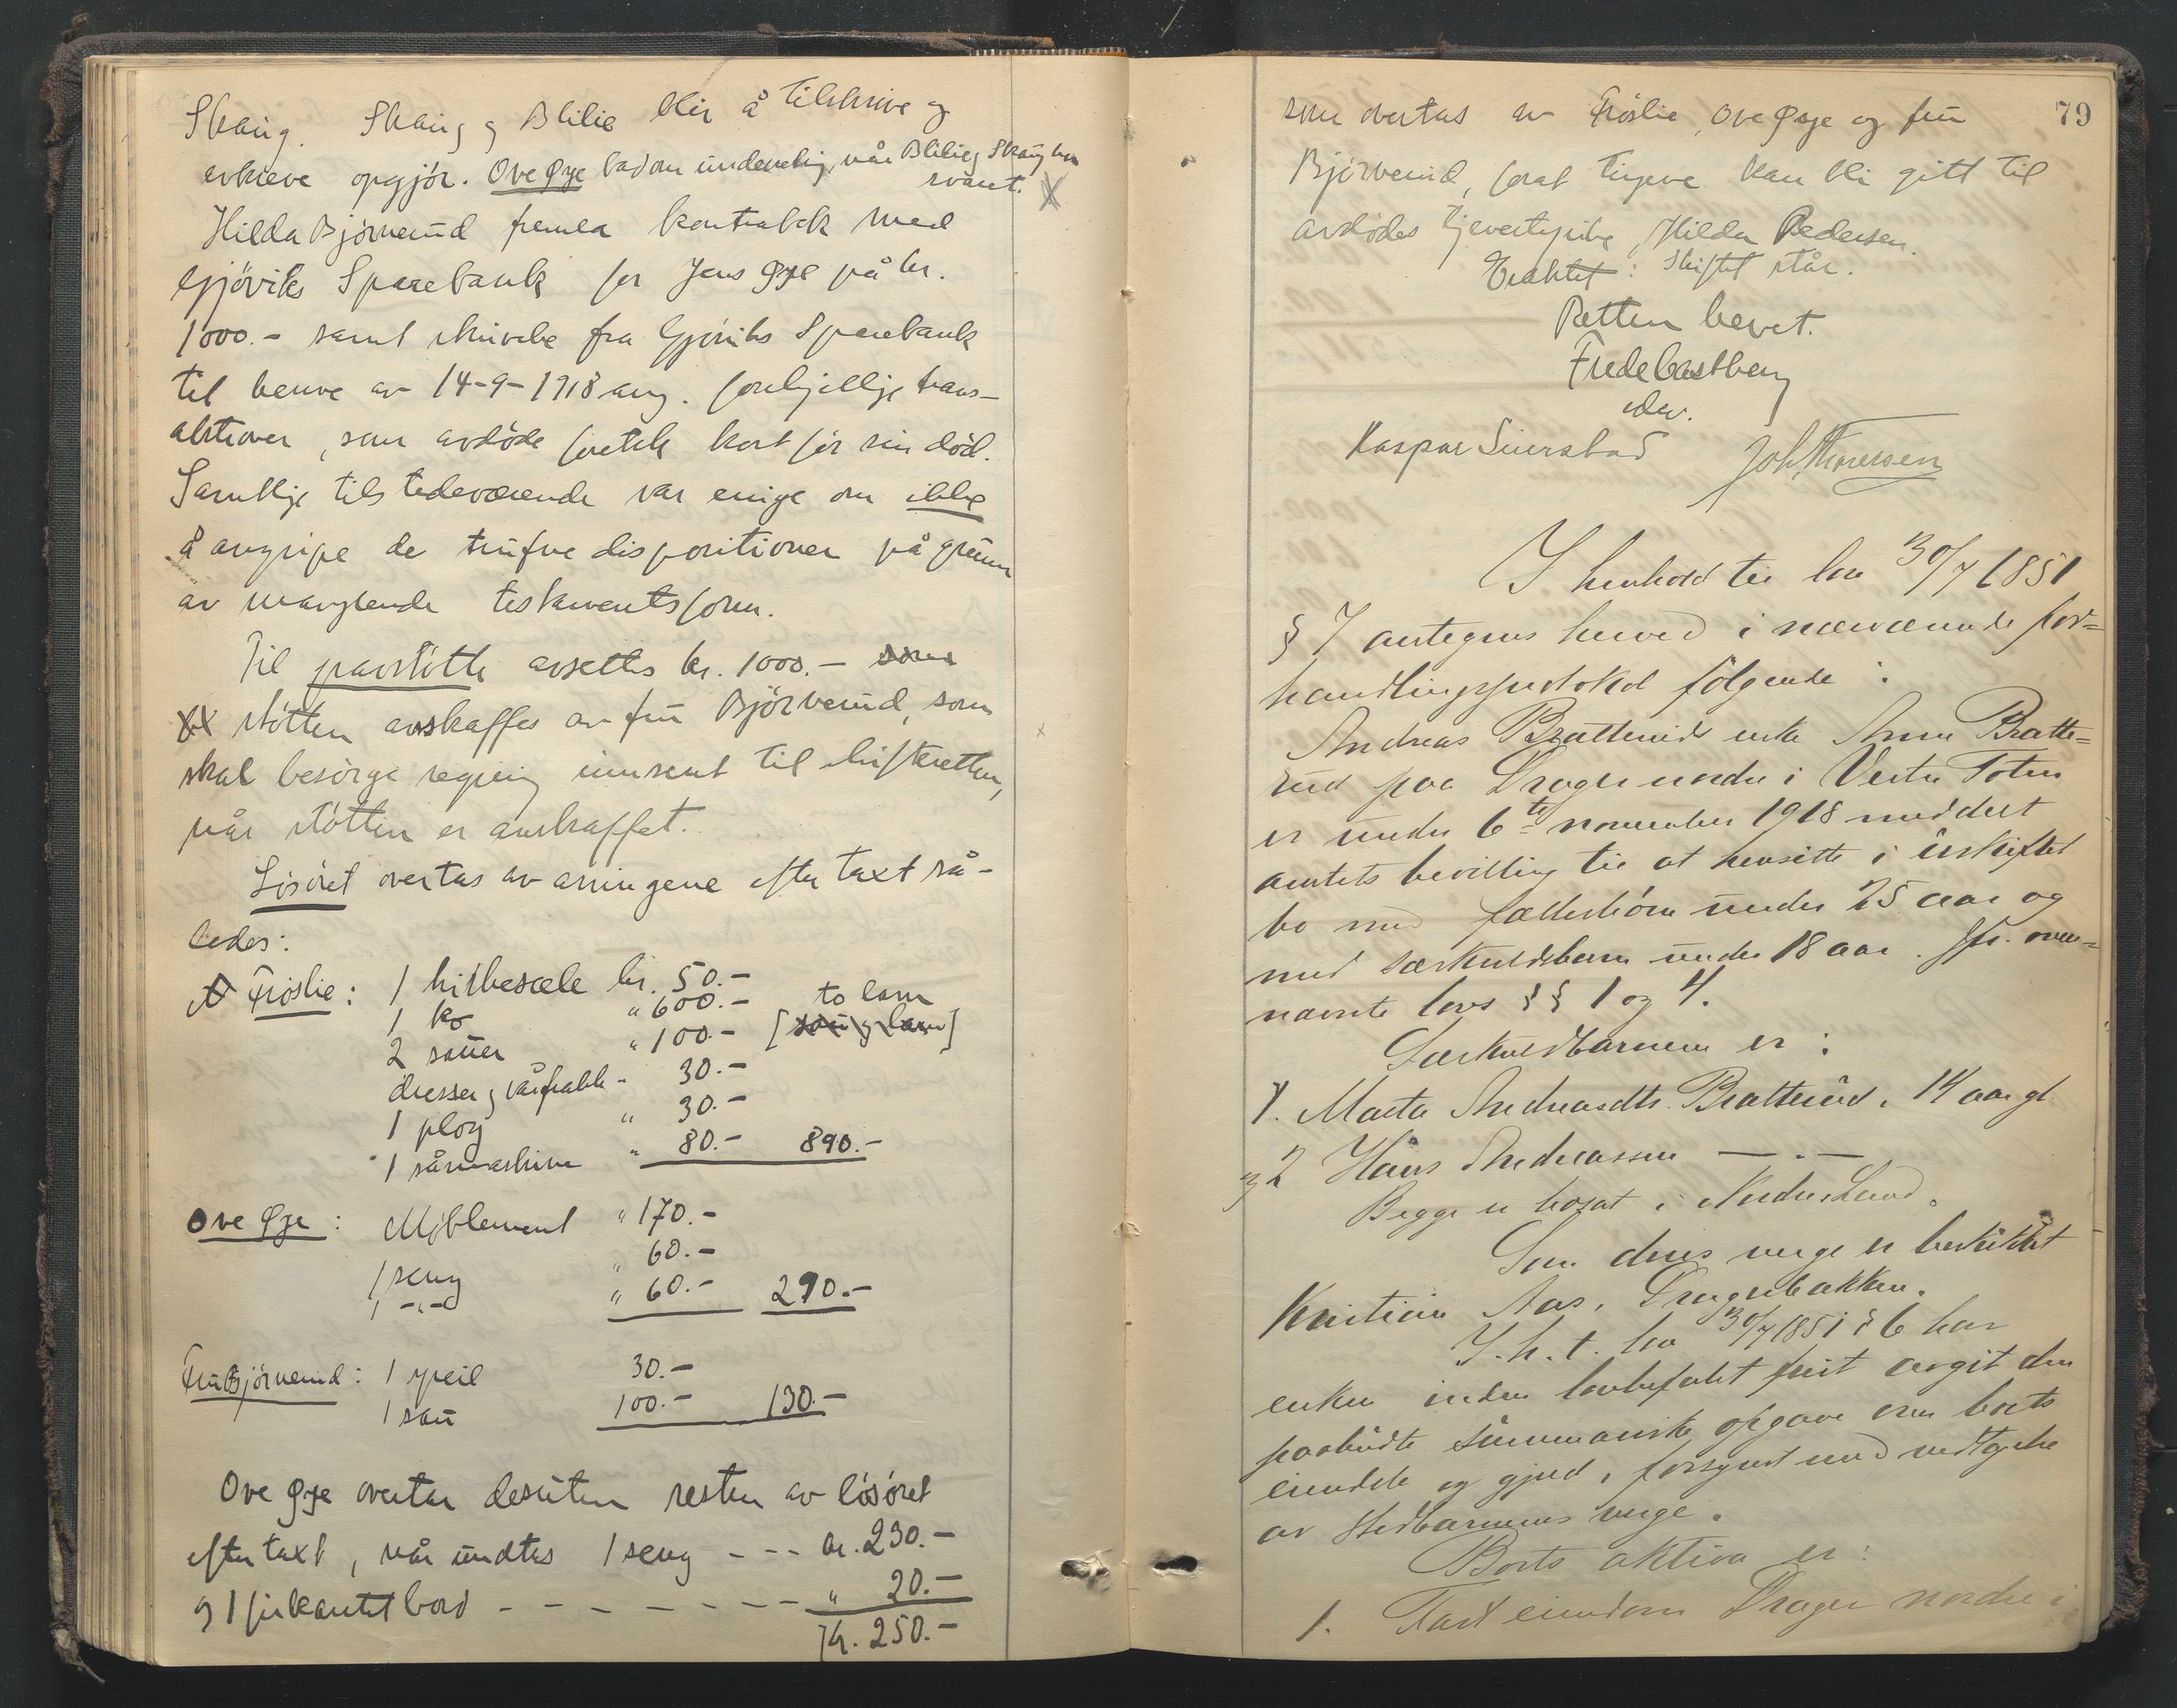 Skaug. Skaug og Blilie blir å tilskrive og
avkreve opgjör. Ove Øye bad om underretning, når Blilie og Skaug har
svaret.
Hilda Björnerud fremla kontrabok med
Gjöviks Sparebank for Jens Øye på kr.
1000.- samt skrivelse fra Gjöviks Sparebank
til henne av 14-9-1918 ang. forskjellige trans-
aktioner, som avdöde foretok kort för sin död.
Samtlige tilstedeværende var enige om ikke
å angripe de trufne dispositioner på grunn
av manglende testamentsform.
Til gravstötte avsettes kr. 1000.- som
støtten anskaffes av fru Björnerud, som
skal besörge regning innsent til skifteretten,
når støtten er anskaffet.
Lösöret overtas av arvingene efter taxt så-
ledes:
Fröslie: 1 kirkesæle kr. 50.-
1 ko " 600.- to lam
2 sauer " 100.- [sau og lam]
dresser og vårfrakk " 30.-
1 plog " 30.-
1 såmaskine " 80.- 890.-
Ove Øye: Møblement " 170.-
1 seng " 60.-
1 -"- " 60.- 290.-
Fru Björnerud: 1 speil 30.-
1 sau 100.- 130.-
Ove Øye overtar desuten resten av lösöret
efter taxt, når undtas 1 seng --- kr. 230.-
og 1 firkantet bord -------- " 20.-
Kr. 250.-
79
som overtas av Fröslie, Ove Øye og fru
Björnerud, forat tingene kan bli gitt til
avdødes tjenestepike, Hilda Pedersen.
Eraktet: Skiftet står.
Retten hevet.
Frede Castberg
edsv.
Kaspar Sivesstad Joh. Thoresen
I henhold til lov 30/7 1851
§ 7 antegnes herved i nærværende for=
handlingsprotokol følgende:
Andreas Bratteruds enke Anne Bratte=
rud paa Drager nordre i Vestre Toten
er under 6te november 1918 meddelt
amtets bevilling til at hensitte i uskiftet
bo med fællesbörn under 25 aar og
med særkuldsbarn under 18 aar. Jfr. oven=
nævnte lovs §§ 1 og 4.
Særkuldbarnene er:
1. Marta Andreasdtr. Bratterud, 14 aar gl
og 2 Hans Andreassen — . —
Begge er bosat i Nordre Land.
Som deres verge er beskikket
Kristian Aas, Dragerbakken.
I. h. t. lov 30/7 1851 § 6 har
enken inden lovbefalet frist avgit den
paabudte summariske opgave over boets
eiendele og gjæld, forsynet med vedtagelse
av stedbarnenes verge.
Boets aktiva er:
1. Fast eiendom Drager nordre i